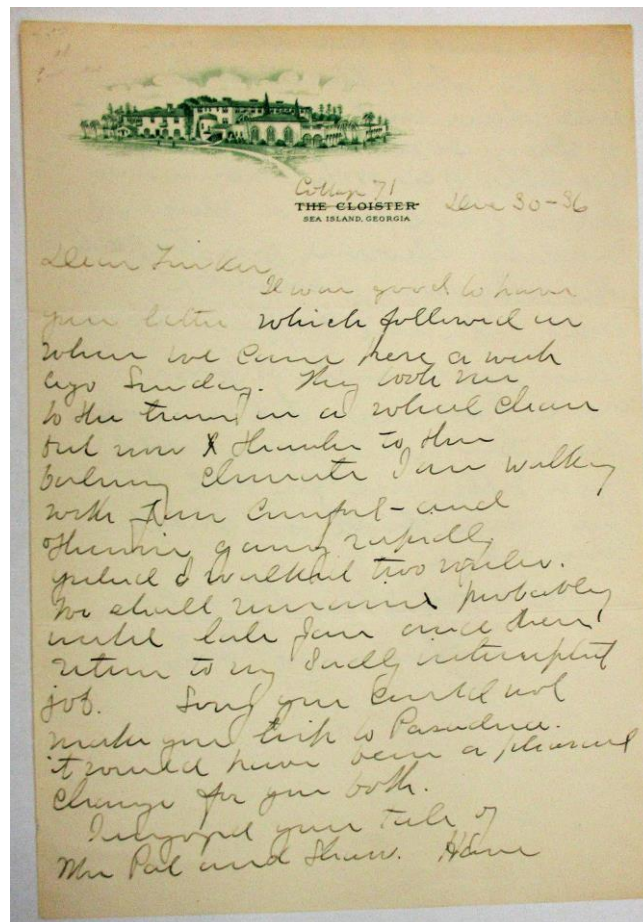 Cottage 71
THE CLOISTER
SEA ISLAND, GEORGIA
Dec 30-36
Dear Tinker
It was good to have
your letter which followed us
when we came here a week
ago Sunday. They took me
to the train in a wheel chair
but now thanks to this
balmy climate I am walking
with comfort - and
otherwise gaining rapidly
I walked two miles.
We shall remain probably
until late Jan and then
return to my sadly interrupted
job. Sorry you could not
make your trip to Pasadena.
it would have been a pleasant
change for you both.
I enjoyed your tale of
Mrs Pat and Shaw. Have